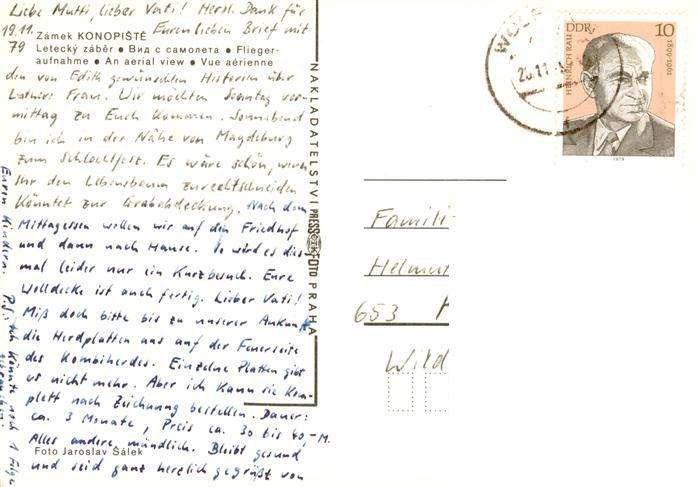 Liebe Mutti, lieber Vati! Herzl. Dank für
19.11. Euren lieben Brief mit
79
Zámek KONOPIŠTĚ
Letecký záběr ● Вид с самолета ● Flieger-
aufnahme ● An aerial view ● Vue aérienne
den von Edith gewünschten Histörchen über
Frau. Wir möchten Sonntag vor-
mittag zu Euch kommen. Sonnabend
bin ich in der Nähe von Magdeburg
zum Schlachtfest. Es wäre schön, wenn
Ihr den Lebensbaum zurechtschneiden
könntet zur Grababdeckung. Nach dem
Mittagessen wollen wir auf den Friedhof
und dann nach Hause. So wird es dies-
mal leider nur ein Kurzbesuch. Eure
Wolldecke ist auch fertig. Lieber Vati!
Miß doch bitte bis zu unserer Ankunft
die Herdplatten aus auf der Feuerseite
des Kombiherdes. Einzelne Platten gibt
es nicht mehr. Aber ich kann sie kom-
plett nach Zeichnung bestellen. Dauer:
ca. 3 Monate, Preis ca. 30 bis 40,-M.
Alles andere mündlich. Bleibt gesund
Foto Jaroslav Šálek
und seid ganz herzlich gegrüßt von
Euren Kindern. P.S.: Ich könnte noch 1 Felge
NAKLADATELSTVÍ PRESSFOTO PRAHA
WOL
20.11.
DDR 10
HEINRICH RAU 1899-1961
1979
Famili
Helmut
653 H
Wild